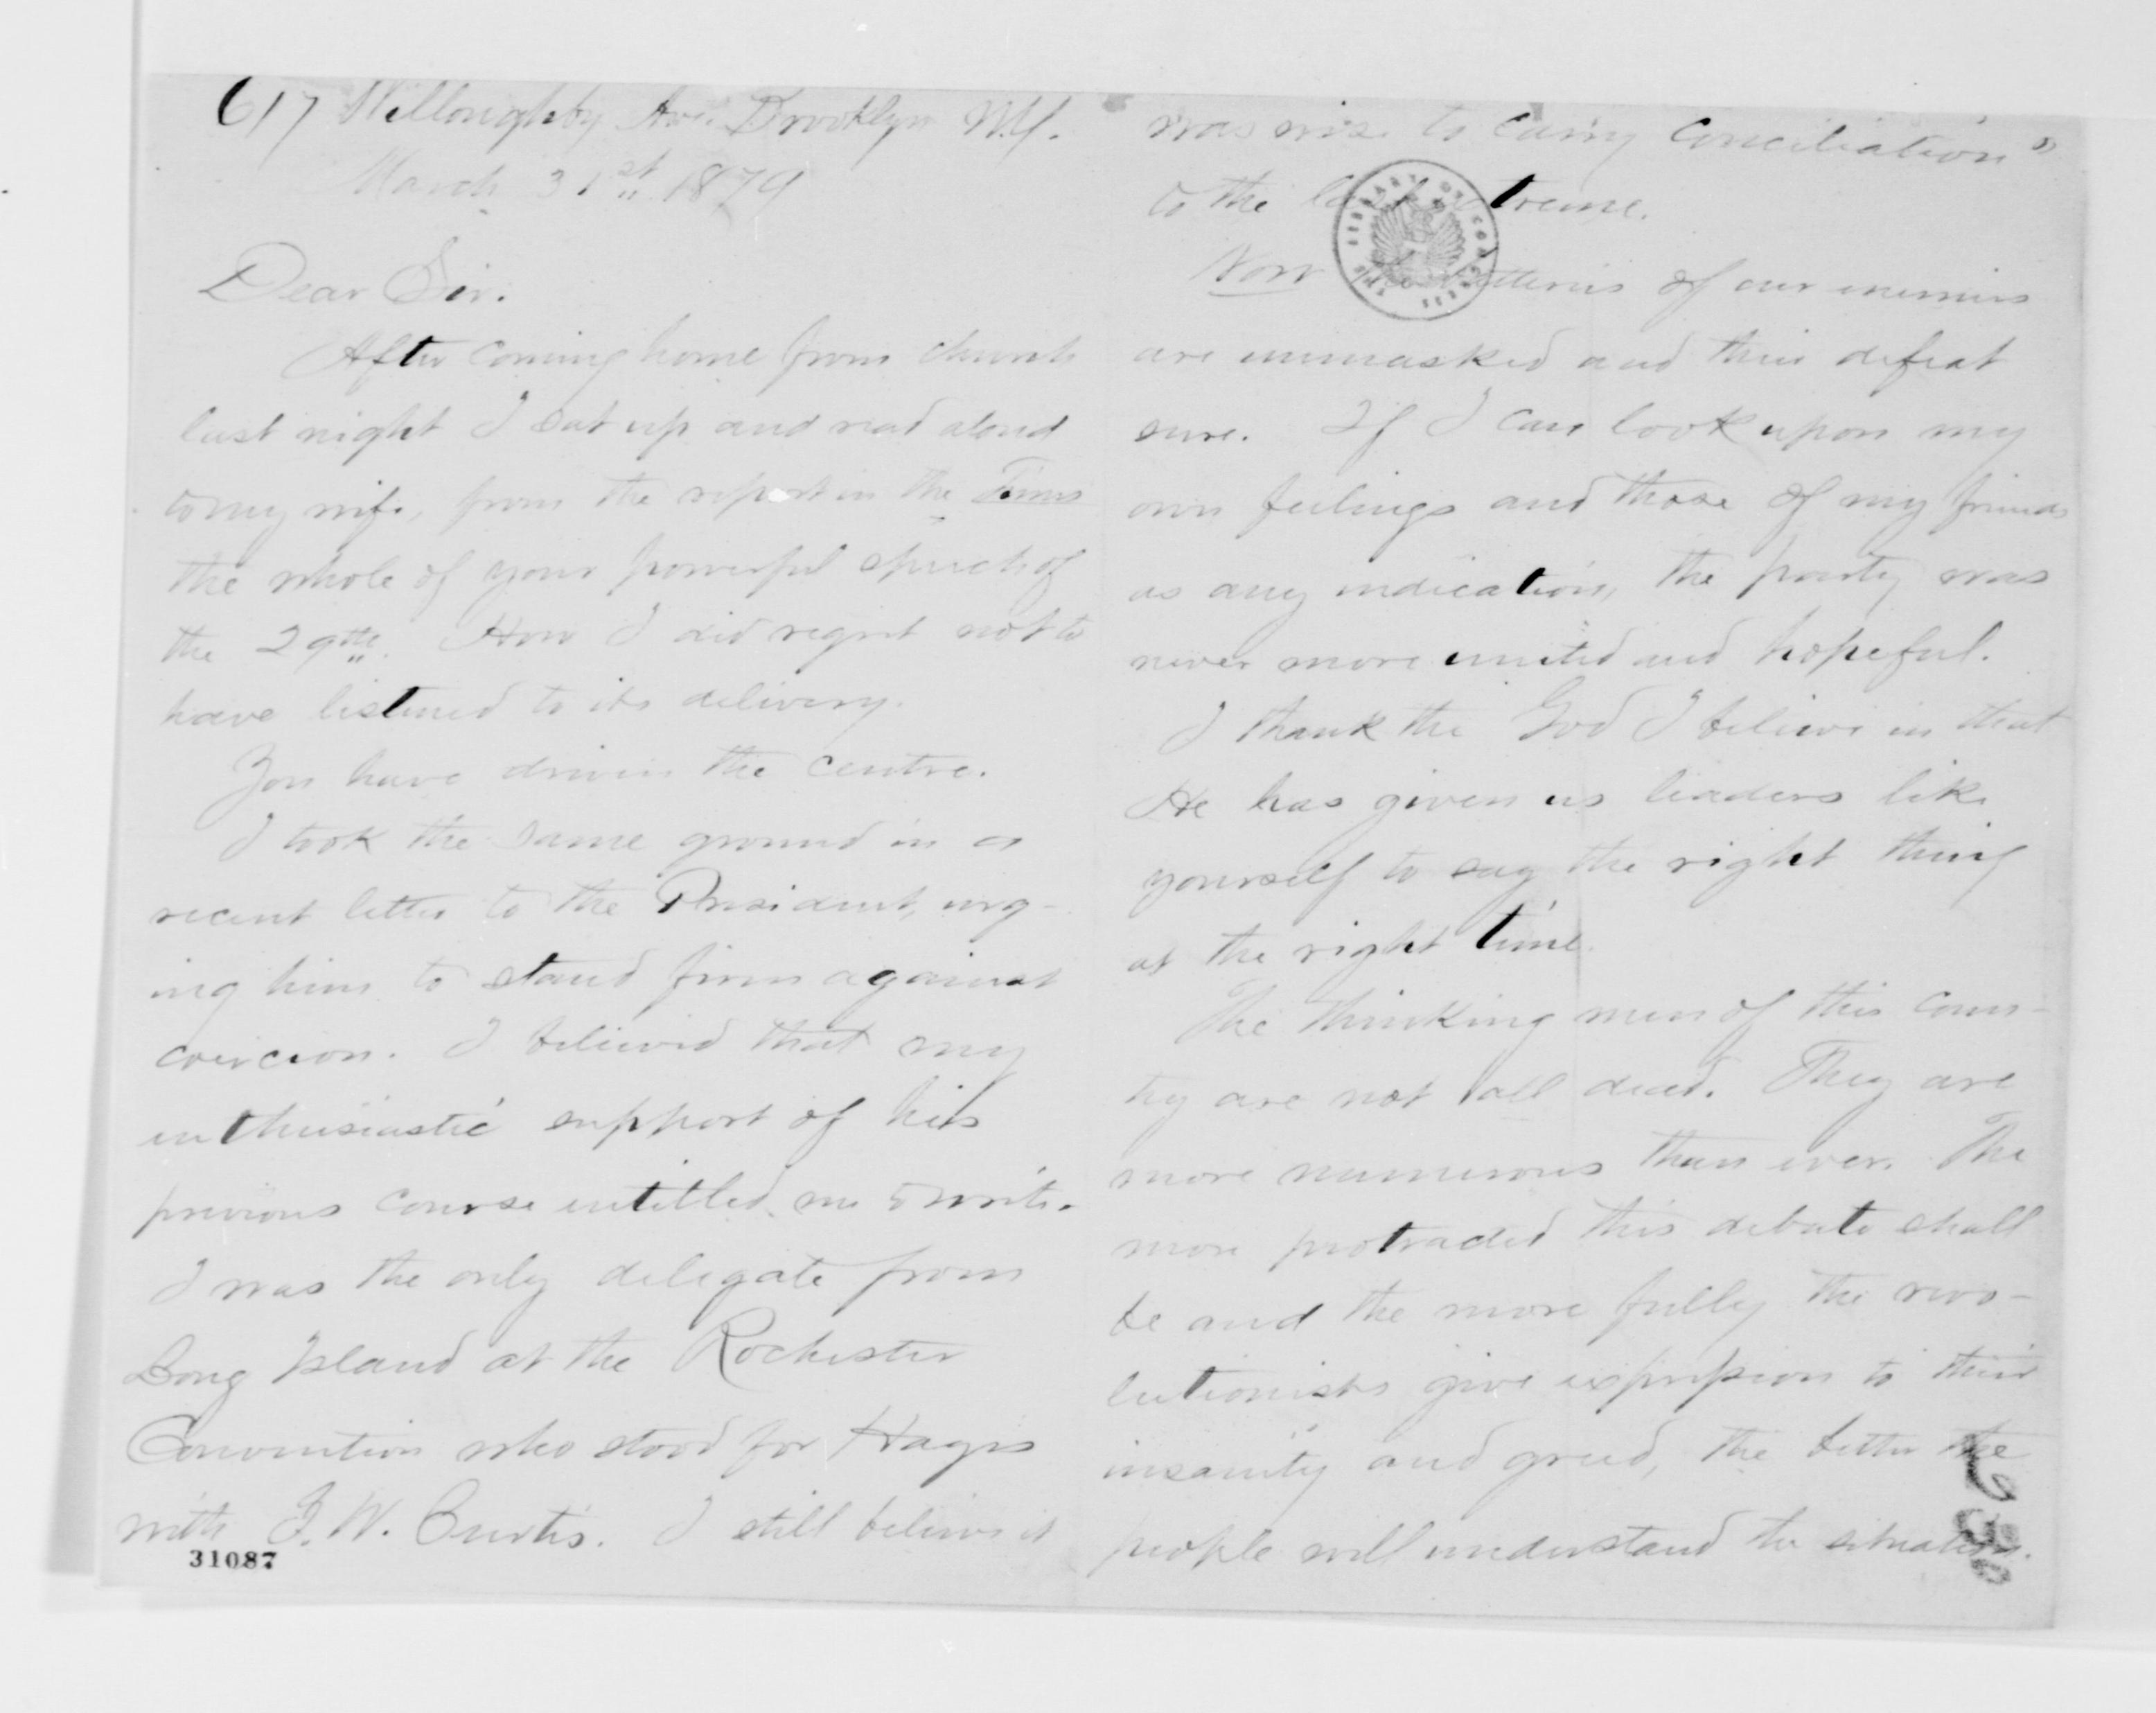 617 Willoughby Ave. Brooklyn N.Y.
March 31st 1879
Dear Sir.
After coming home from church
last night I sat up and read aloud
to my wife, from the report in the Times
the whole of your powerful speech of
the 29th. How I did regret not to
have listened to its delivery.
You have driven the centre.
I took the same ground in a
recent letter to the President, urg-
ing him to stand firm against
coercion. I believed that my
enthusiastic support of his
previous course entitled me to write.
I was the only delegate from
Long Island at the Rochester
Convention who stood for Hayes
with G. W. Curtis. I still believe it
31087
was wise to carry conciliation"
to the last extreme.
Now the of our enemies
are unmasked and their defeat
sure. If I can look upon my
own feelings and those of my friends
as any indication, the party was
never more united and hopeful.
I thank the God I believe in that
He has given us leaders like
yourself to say the right thing
at the right time.
The thinking men of this coun-
try are not all dead. They are
more numerous than ever. The
more protracted this debate shall
be and the more fully the revo-
lutionists give expression to their
insanity and greed, the better the
people will understand the situation.
THE LIBRARY OF CONGRESS